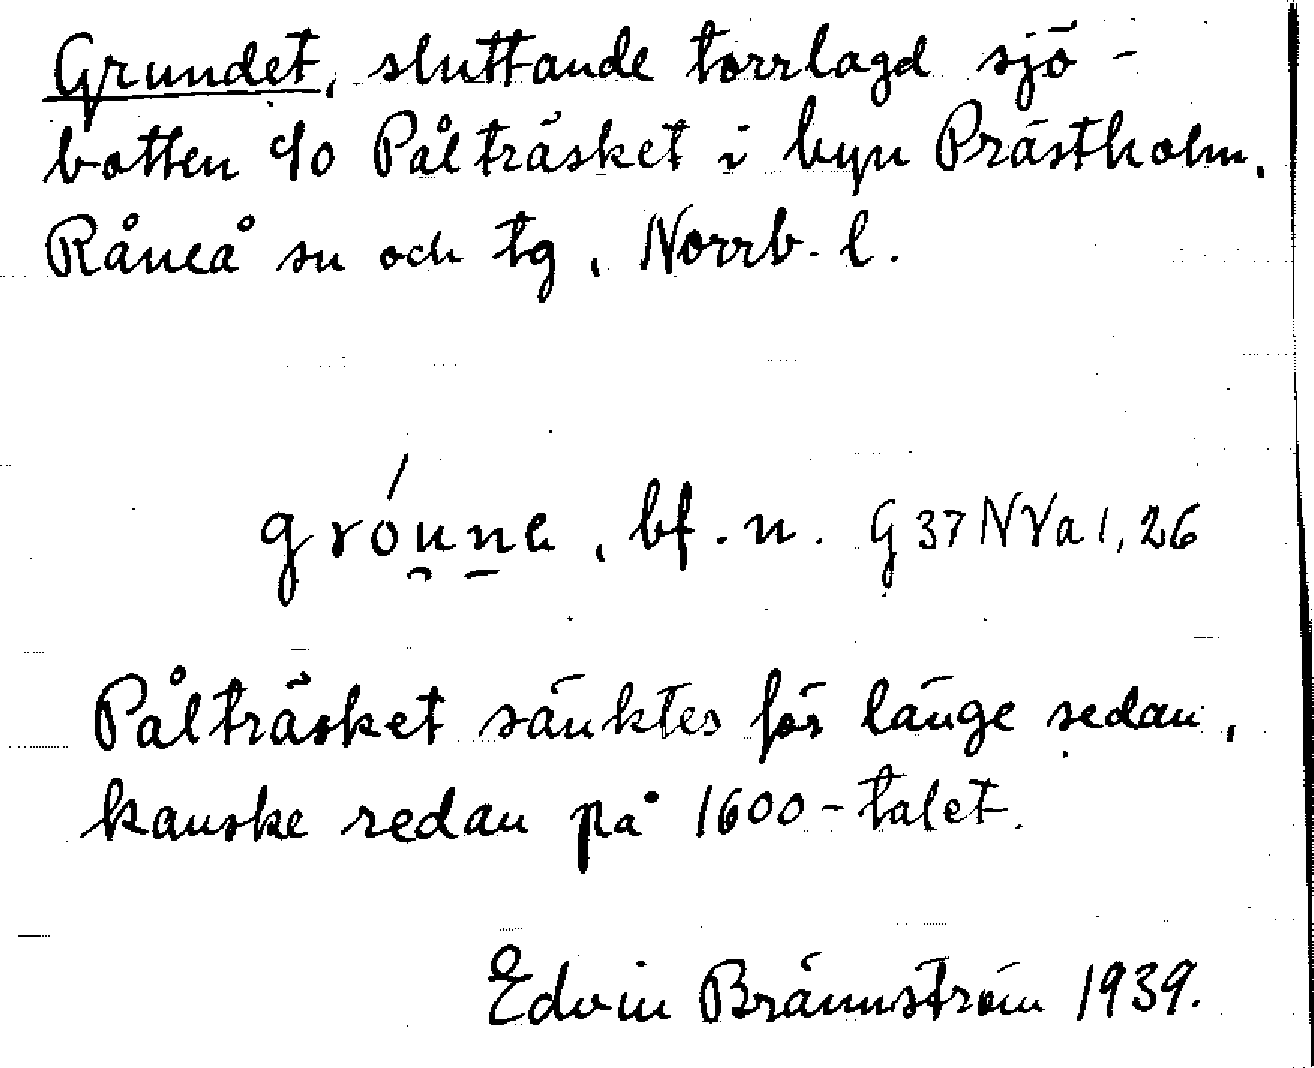 Grundet, sluttande torrlagd sjö-
botten c/o Pålträsket i byn Prästholm,
Råneå sn och tg, Norrb. l.
gróu̯n̠e, bf. n. G37NVa1,26
Pålträsket sänktes för länge sedan,
kanske redan på 1600-talet.
Edvin Brännström 1939.